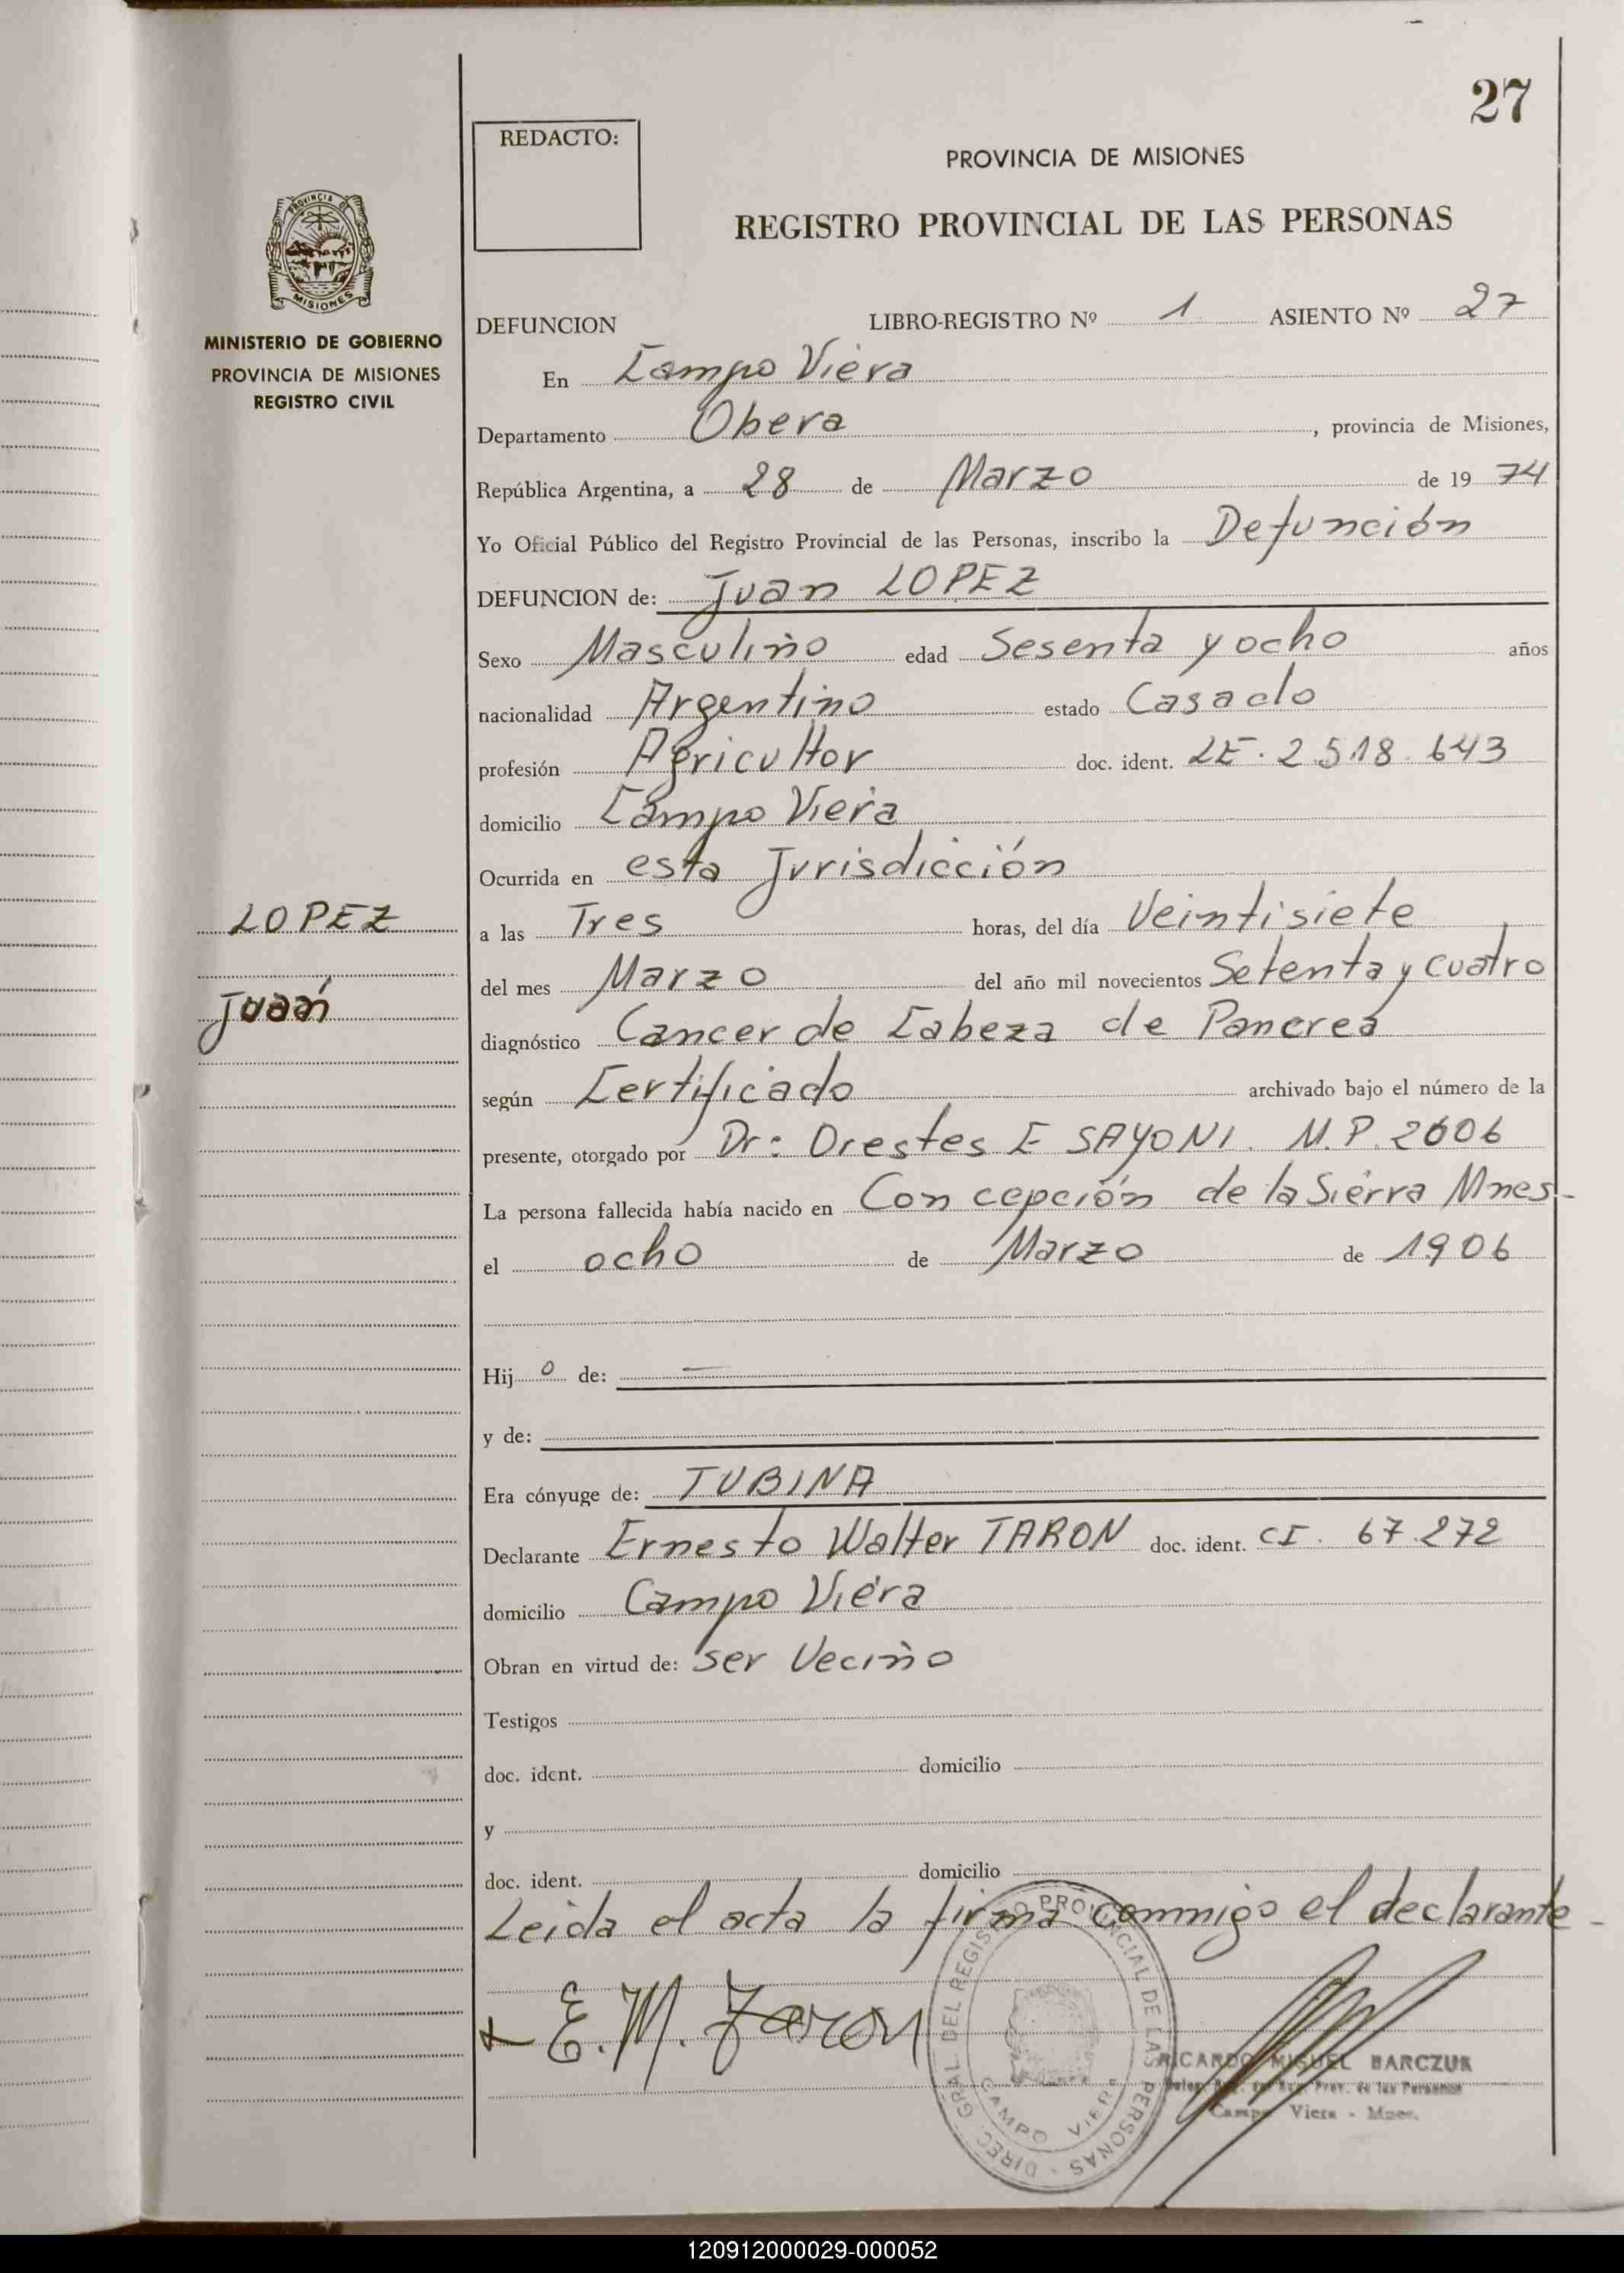 27
REDACTO:
PROVINCIA DE MISIONES
REGISTRO PROVINCIAL DE LAS PERSONAS
PROVINCIA DE
MISIONES
MINISTERIO DE GOBIERNO
PROVINCIA DE MISIONES
REGISTRO CIVIL
DEFUNCION LIBRO-REGISTRO Nº 1 ASIENTO Nº 27
En Campo Viera
Departamento Obera, provincia de Misiones,
República Argentina, a 28 de Marzo de 19 74
Yo Oficial Público del Registro Provincial de las Personas, inscribo la Defunción
DEFUNCION de: Juan LOPEZ
Sexo Masculino edad Sesenta y ocho años
nacionalidad Argentino estado Casado
profesión Agricultor doc. ident. LE. 2.518.643
domicilio Campo Viera
Ocurrida en esta Jurisdicción
LOPEZ
Juan
a las Tres horas, del día Veintisiete
del mes Marzo del año mil novecientos Setenta y cuatro
diagnóstico Cancer de Cabeza de Pancrea
según Certificado archivado bajo el número de la
presente, otorgado por Dr: Orestes E SAYONI. M.P. 2606
La persona fallecida había nacido en Concepción de la Sierra Mnes-
el ocho de Marzo de 1906
Hij o de: —
y de:
Era cónyuge de: TUBINA
Declarante Ernesto Walter TARON doc. ident. CI. 67.272
domicilio Campo Viera
Obran en virtud de: ser Vecino
Testigos
doc. ident. domicilio
y
doc. ident. domicilio
Leida el acta la firma conmigo el declarante-
E. W. Taron
DIREC. GRAL. DEL REGISTRO PROVINCIAL DE LAS PERSONAS -
CAMPO VIERA
RICARDO MIGUEL BARCZUK
Prov. de las Personas
Campo Viera - Mnes.
120912000029-000052